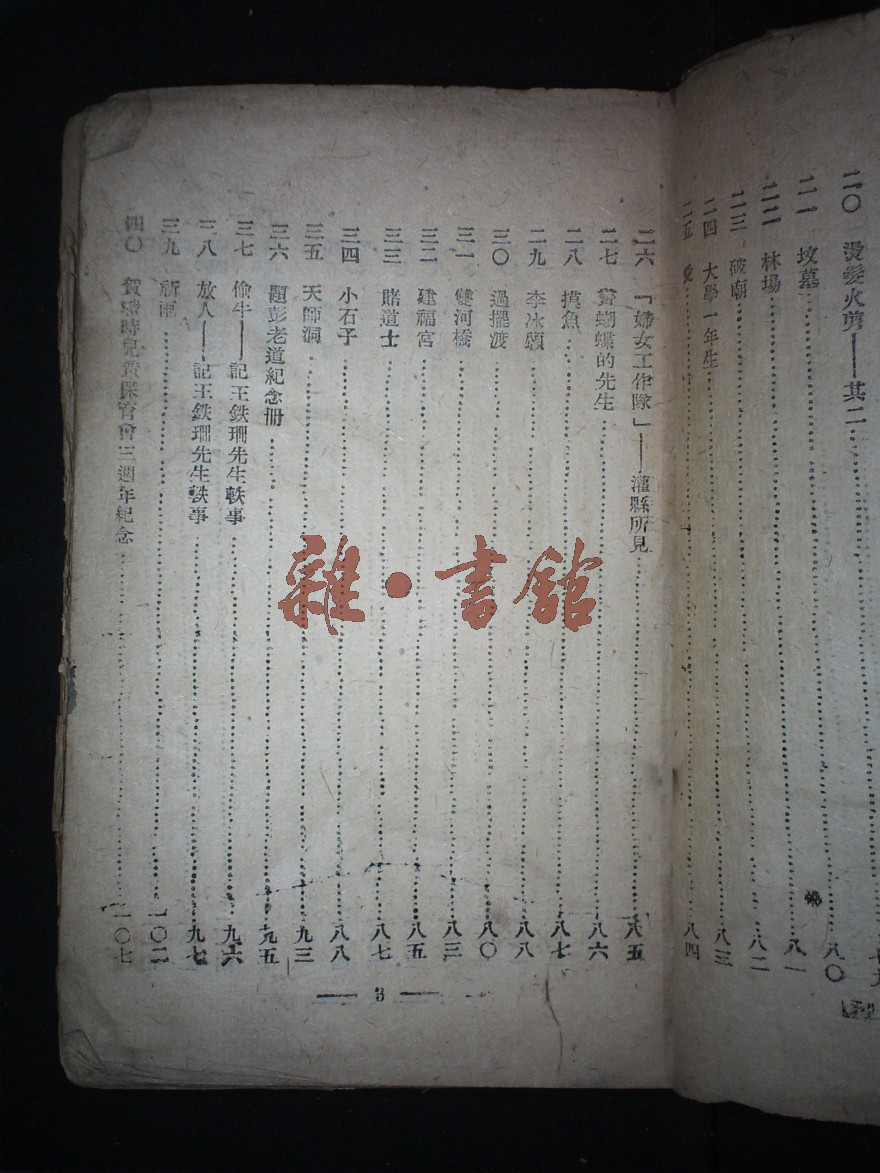 二〇 燙髮火剪——其二
八〇
二一 墳墓
八一
二二 林場
八二
二三 破廟
八三
二四 大學一年生
八四
二五
二六 「婦女工作隊」——灌縣所見 八五
二七 賣蝴蝶的先生 八六
二八 摸魚 八七
二九 李冰頌 八八
三〇 過擺渡 八〇
三一 雙河橋 八三
三二 建福宮 八五
三三 賭道士 八七
三四 小石子 八八
三五 天師洞 九三
三六 題彭老道紀念冊 九五
三七 偷牛——記王鉄珊先生軼事 九六
三八 放人——記王鉄珊先生軼事 九七
三九 祈雨 一〇二
四〇 賀戰時兒童保育會三週年紀念 一〇七
— 3 —
雜·書館